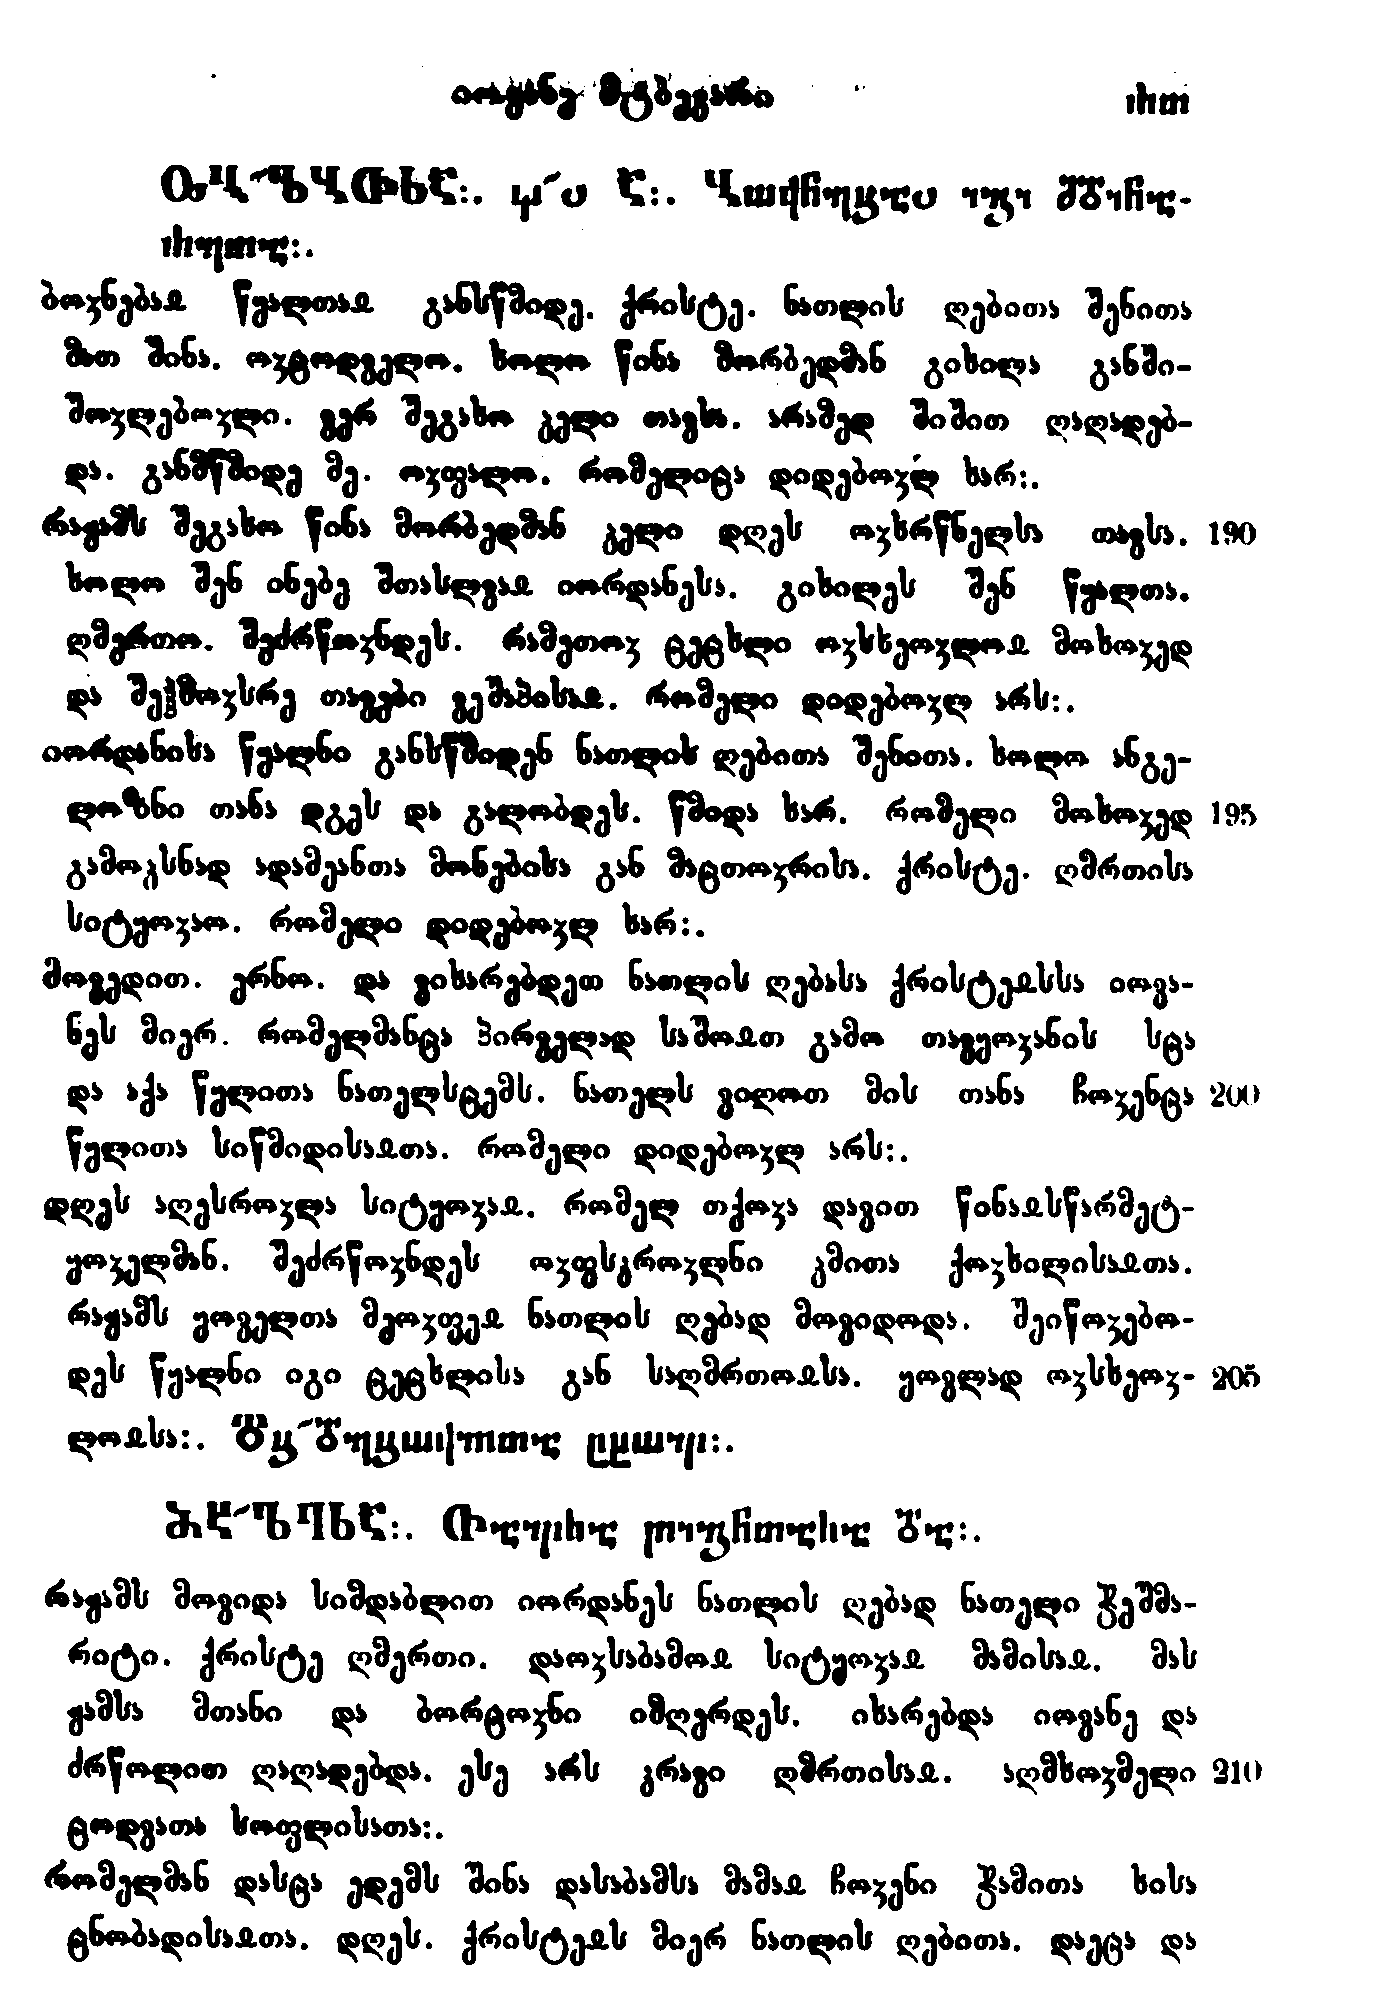 იოვანე მტბევარი
ბოჳნებაჲ წყალთაჲ განსწმიდე. ქრისტე. ნათლის ღებითა შენითა
მათ შინა. ოჳცოდველო. ხოლო წინა მორბედმან გიხილა განში-
შოჳლებოჳლი. ვერ შეგახო ჴელი თავსა. არამედ შიშით ღაღადებ-
და. განმწმიდე მე. ოჳფალო. რომელიცა დიდებოჳლ ხარ:.
რაჟამს შეგახო წინა მორბედმან ჴელი დღეს ოჳხრწნელსა თავსა. 190
ხოლო შენ ინებე შთასლვაჲ იორდანესა. გიხილეს შენ წყალთა.
ღმერთო. შეძრწოჳნდეს. რამეთოჳ ცეცხლი ოჳსხეოჳლოჲ მოხოჳედ
და შეჰმოჳსრე თავები ვეშაპისაჲ. რომელი დიდებოჳლ არს:.
იორდანისა წყალნი განსწმიდენ ნათლის ღებითა შენითა. ხოლო ანგე-
ლოზნი თანა დგეს და გალობდეს. წმიდა ხარ. რომელი მოხოჳედ 195
გამოჴსნად ადამეანთა მონებისა გან მაცთოჳრისა. ქრისტე. ღმრთისა
სიტყოჳაო. რომელი დიდებოჳლ ხარ:.
მოვედით. ერნო. და ვიხარებდეთ ნათლის ღებასა ქრისტეჲსსა იოვა-
ნეს მიერ. რომელმანცა პირველად საშოჲთ გამო თავყოჳანის სცა
და აქა წყლითა ნათელსცემს. ნათელს ვიღოთ მის თანა ჩოჳენცა 200
წყლითა სიწმიდისაჲთა. რომელი დიდებოჳლ არს:.
დღეს აღესროჳლა სიტყოჳაჲ. რომელ თქოჳა დავით წინაჲსწარმეტ-
ყოჳელმან. შეძრწოჳნდეს ოჳფსკროჳლნი ჴმითა ქოჳხილისაჲთა.
რაჟამს ყოველთა მეოჳფეჲ ნათლის ღებად მოვიდოდა. შეიწოჳებო-
დეს წყალნი იგი ცეცხლისა გან საღმრთოჲსა. ყოვლად ოჳსხეოჳ- 205
ლოჲსა:.
რაჟამს მოვიდა სიმდაბლით იორდანეს ნათლის ღებად ნათელი ჭეშმა-
რიტი. ქრისტე ღმერთი. დაოჳსაბამოჲ სიტყოჳაჲ მამისაჲ. მას
ჟამსა მთანი და ბორცოჳნი იმღერდეს. იხარებდა იოვანე და
ძრწოლით ღაღადებდა. ესე არს კრავი ღმრთისაჲ. აღმხოჳმელი 210
ცოდვათა სოფლისათა:.
რომელმან დასცა ედემს შინა დასაბამსა მამაჲ ჩოჳენი ჭამითა ხისა
ცნობადისაჲთა. დღეს. ქრისტეჲს მიერ ნათლის ღებითა. დაეცა და